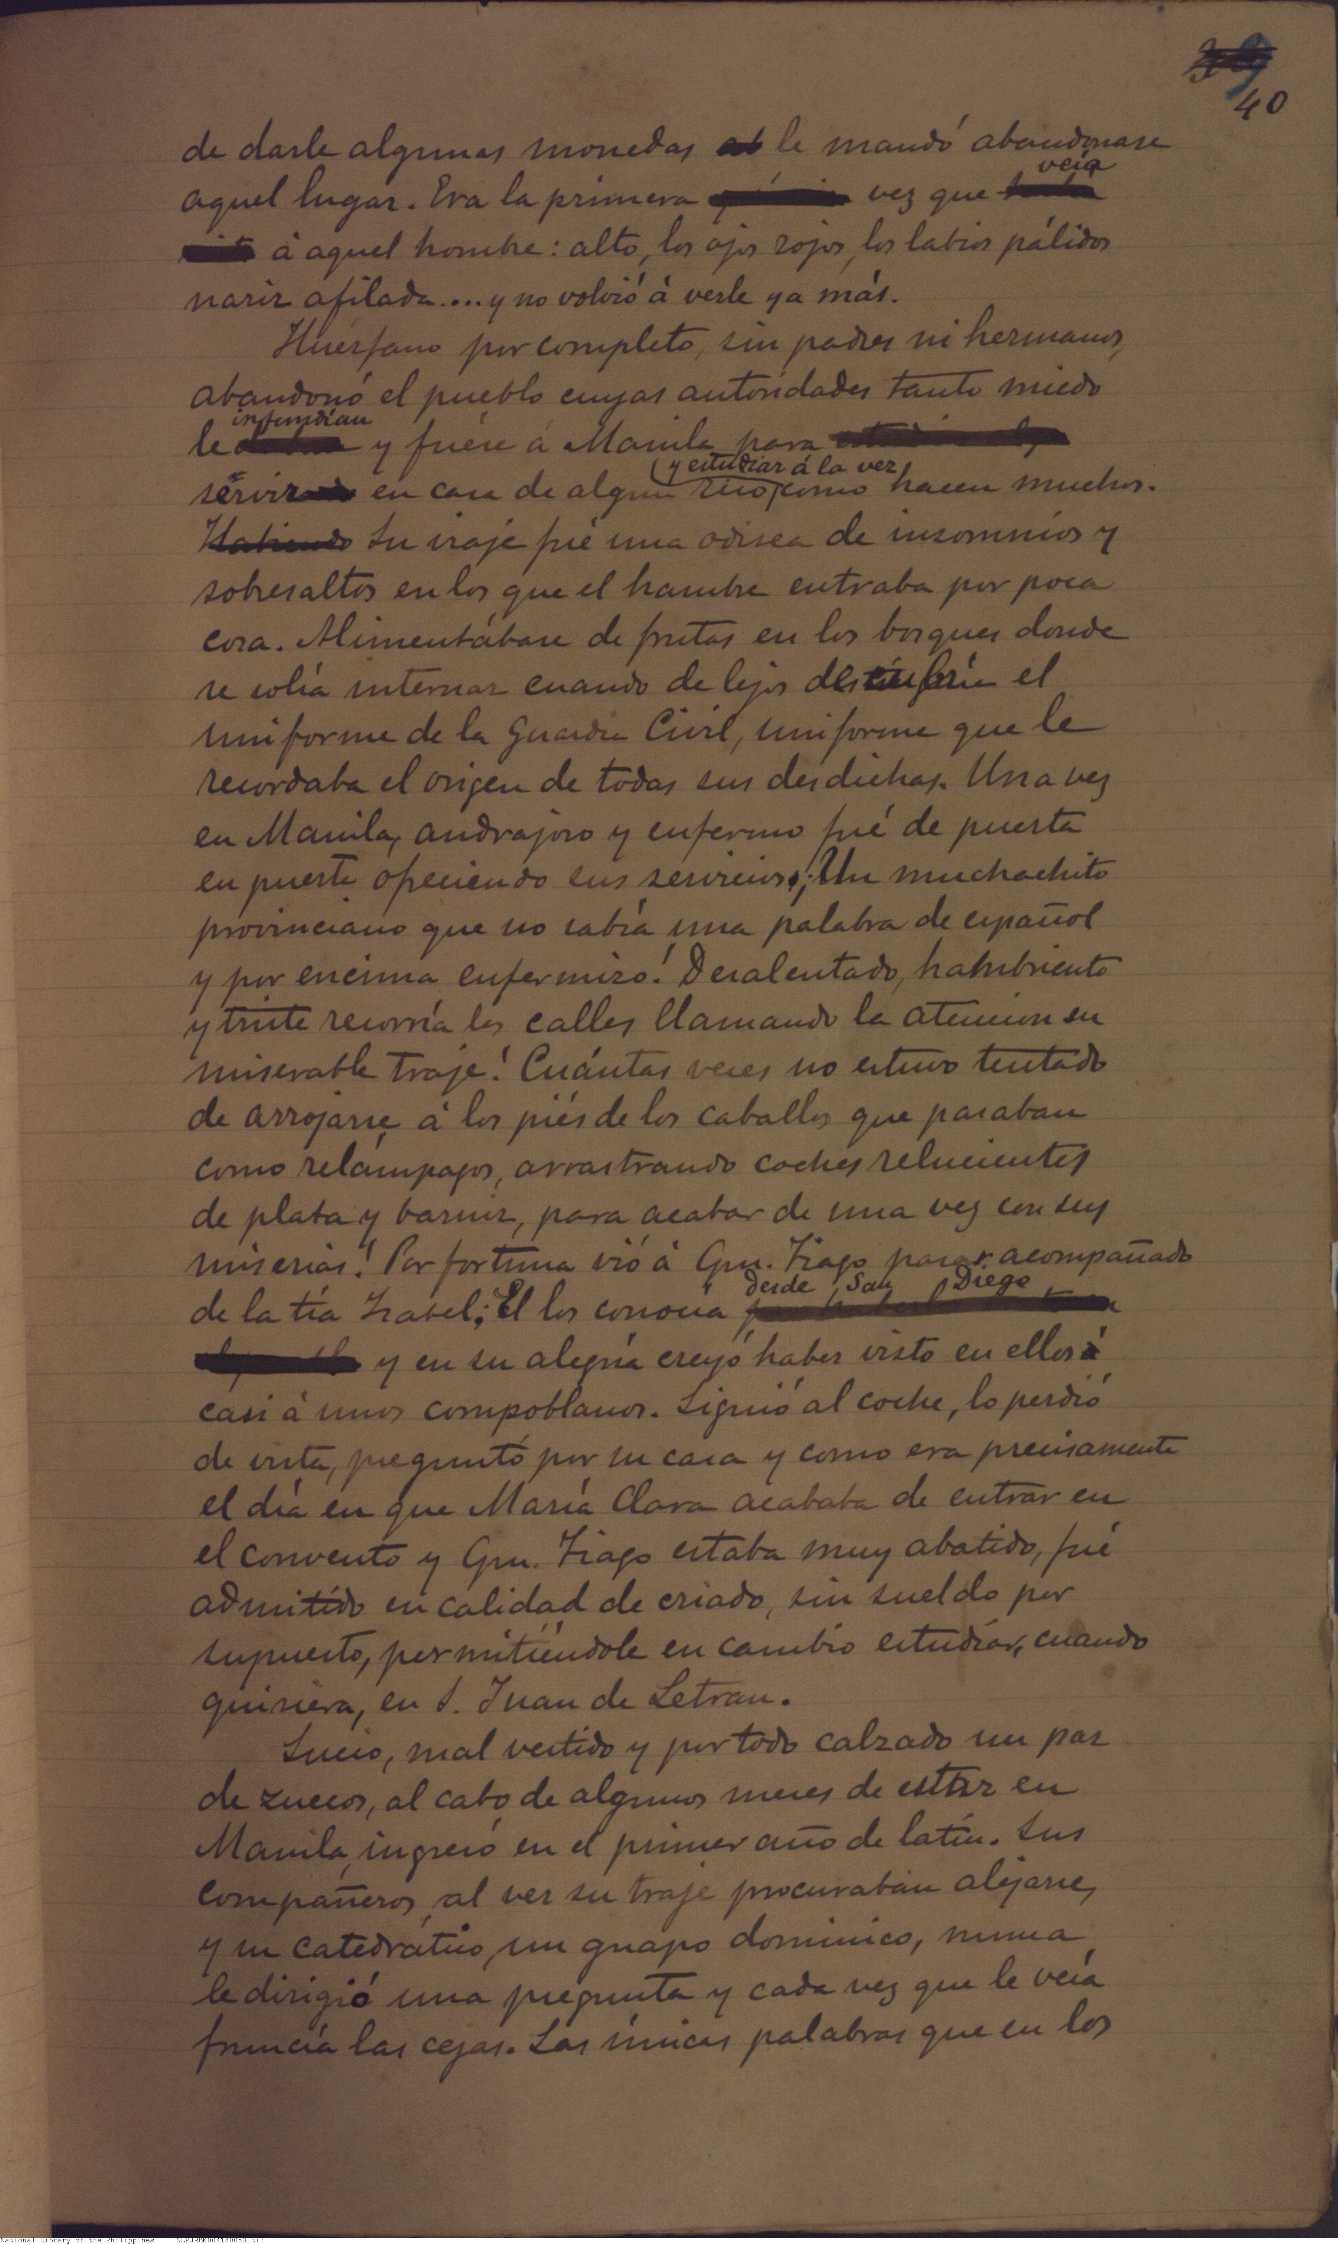 40
de darle algunas monedas le mandó abandonase
aquel lugar. Era la primera vez que veía
á aquel hombre: alto, los ojos rojos, los labios pálidos
nariz afilada.... y no volvió á verle ya más.
Huérfano por completo, sin padres ni hermanos,
abandonó el pueblo cuyas autoridades tanto miedo
le infundían y fuése á Manila para
servir en casa de algun rico y estudiar á la vez como hacen muchos.
Habiendo Su viaje fué una odisea de insomnios y
sobresaltos en los que el hambre entraba por poca
cosa. Alimentábase de frutas en los bosques donde
se solía internar cuando de lejos descubría el
uniforme de la Guardia Civil, uniforme que le
recordaba el origen de todas sus desdichas. Una vez
en Manila, andrajoso y enfermo fué de puerta
en puerta ofreciendo sus servicios; Un muchachito
provinciano que no sabía una palabra de español
y por encima enfermizo! Desalentado, hambriento
y triste recorría las calles llamando la atencion su
miserable traje! Cuántas veces no estuvo tentado
de arrojarse á los piés de los caballos que pasaban
como relámpagos, arrastrando coches relucientes
de plata y barniz, para acabar de una vez con sus
miserias! Por fortuna vió á Cpn. Tiago pasar acompañado
de la tía Isabel; El los conocía desde San Diego
y en su alegría creyó haber visto en ellos á
casi á unos compoblanos. Siguió al coche, lo perdió
de vista, preguntó por su casa y como era precisamente
el día en que María Clara acababa de entrar en
el convento y Cpn. Tiago estaba muy abatido, fué
admitido en calidad de criado, sin sueldo por
supuesto, permitiéndole en cambio estudiar, cuando
quisiera, en S. Juan de Letran.
Sucio, mal vestido y por todo calzado un par
de zuecos, al cabo de algunos meses de estar en
Manila, ingresó en el primer año de latín. Sus
compañeros, al ver su traje procuraban alejarse,
y su catedrático, un guapo dominico, nunca
le dirigió una pregunta y cada vez que le veía
fruncía las cejas. Las únicas palabras que en los